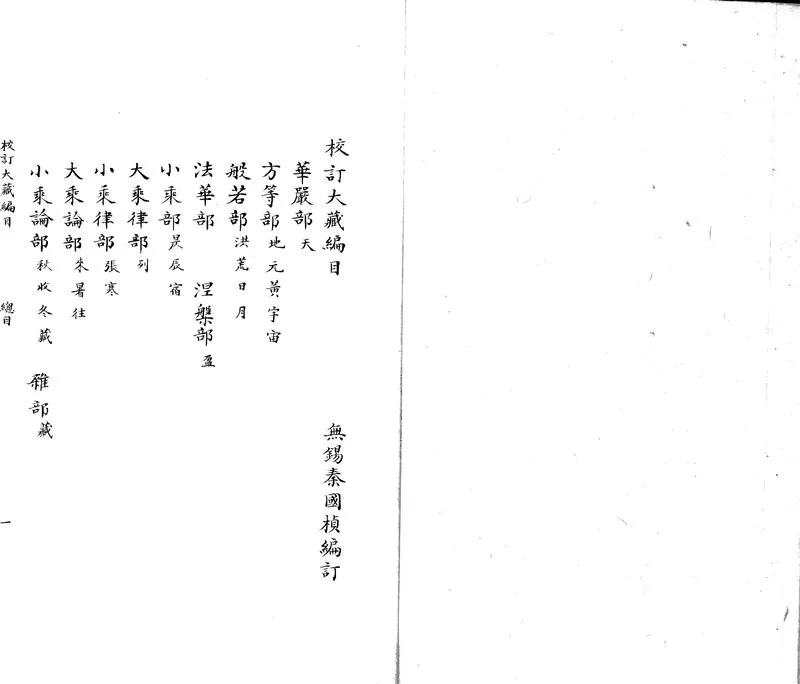 校訂大藏編目
無錫秦國楨編訂
華嚴部 天
方等部 地元黃宇宙
般若部 洪荒日月
法華部 涅槃部 盈
小乘部 昃辰宿
大乘律部 列
小乘律部 張寒
大乘論部 來暑往
小乘論部 秋收冬藏 雜部 藏
校訂大藏編目 總目 一